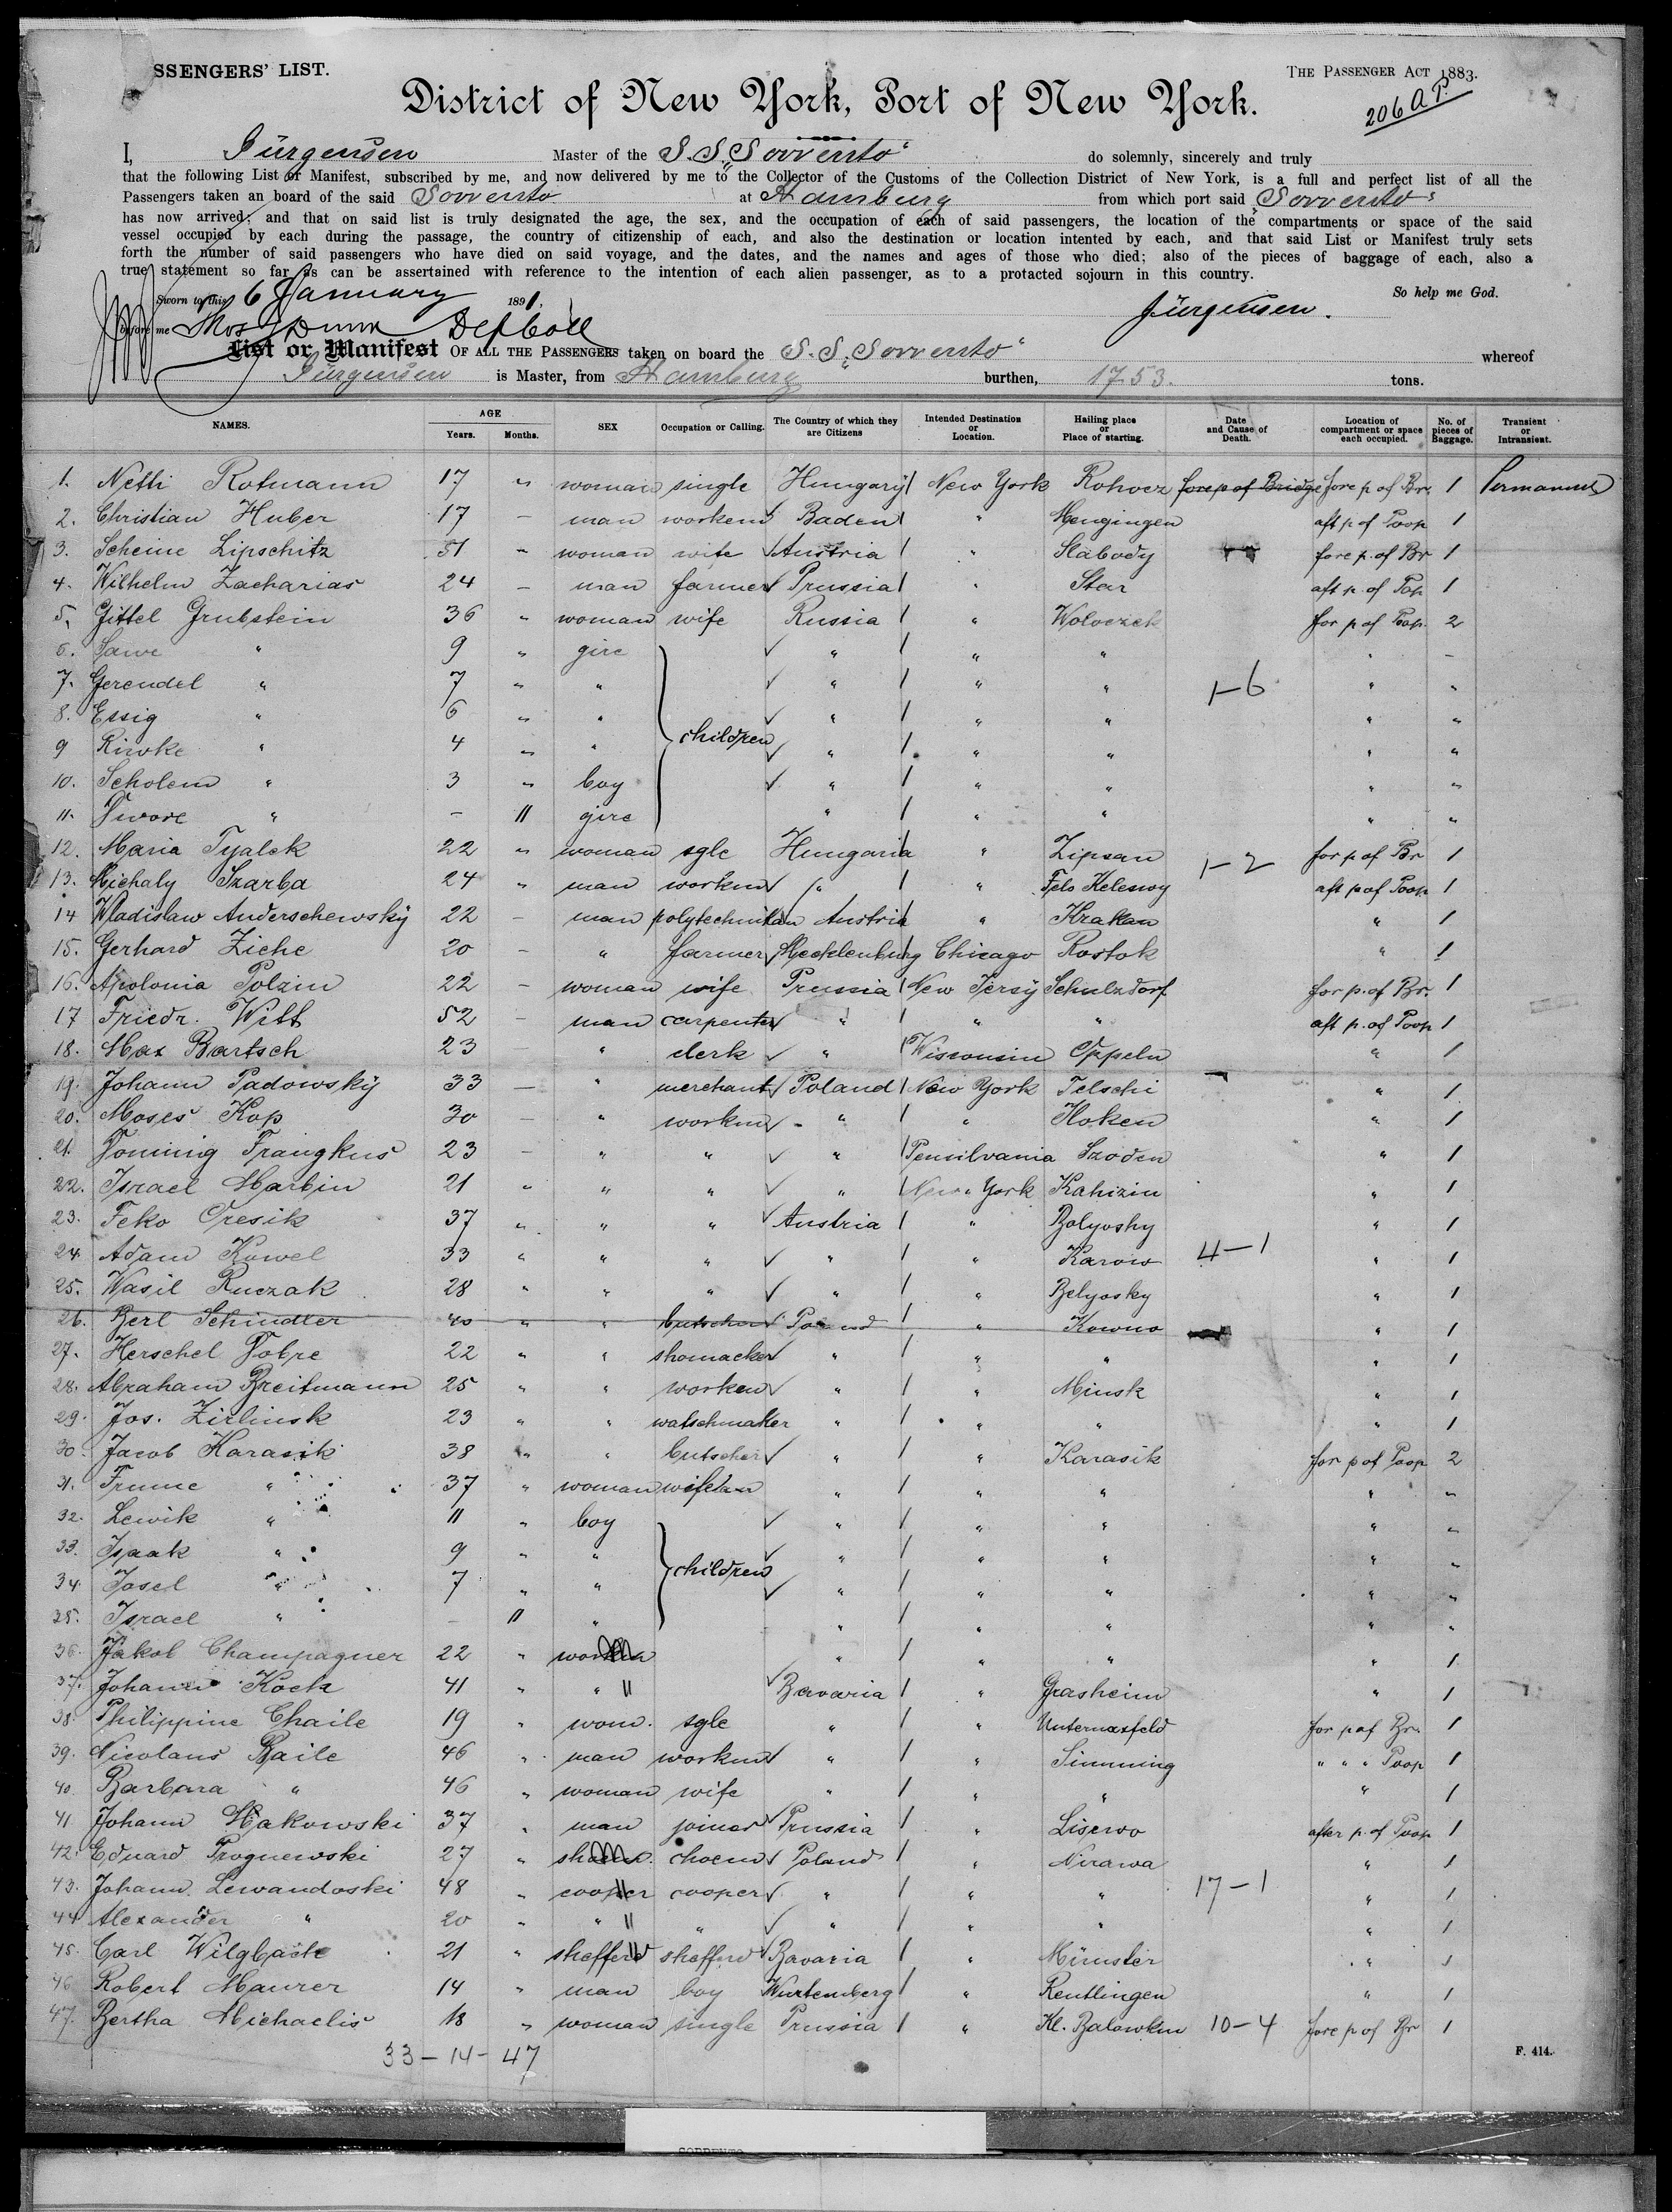 SSENGERS' LIST.
THE PASSENGER ACT 1883.
206 A P.
District of New York, Port of New York.
I, Jürgensen Master of the S.S. „Sorrento" do solemnly, sincerely and truly
that the following List or Manifest, subscribed by me, and now delivered by me to the Collector of the Customs of the Collection District of New York, is a full and perfect list of all the
Passengers taken an board of the said Sorrento at Hamburg from which port said „Sorrento"
has now arrived; and that on said list is truly designated the age, the sex, and the occupation of each of said passengers, the location of the compartments or space of the said
vessel occupied by each during the passage, the country of citizenship of each, and also the destination or location intented by each, and that said List or Manifest truly sets
forth the number of said passengers who have died on said voyage, and the dates, and the names and ages of those who died; also of the pieces of baggage of each, also a
true statement so far as can be assertained with reference to the intention of each alien passenger, as to a protacted sojourn in this country.
Sworn to this 6 January 1891. So help me God.
before me Thos J Dunn Dep Coll Jürgensen.
List or Manifest OF ALL THE PASSENGERS taken on board the S.S. „Sorrento" whereof
Jürgensen is Master, from Hamburg burthen, 1753. tons.
NAMES. AGE Years. Months. SEX Occupation or Calling. The Country of which they are Citizens Intended Destination or Location. Hailing place or Place of starting. Date and Cause of Death. Location of compartment or space each occupied. No. of pieces of Baggage. Transient or Intransient.
1. Netti Rotmann 17 " woman single Hungary New York Rohocz fore p of Bridge fore p of Br. 1 Permanent
2. Christian Huber 17 — man workem Baden " Mengingen aft p of Poop 1
3. Scheine Lipschitz 51 " woman wife Austria " Slabody fore p. of Br 1
4. Wilhelm Zacharias 24 — man farmer Prussia " Star aft p. of Pop 1
5. Gittel Grubstein 36 " woman wife Russia " Woloczek for p of Poop. 2
6. Sawe " 9 " girl " " " " –
7. Gerendel " 7 " " " " " 1–6 " "
8. Essig " 6 " " " " " " "
9 Riwke " 4 " " children " " " " "
10. Scholem " 3 " boy " " " " "
11. Dwore " – 11 girl " " " " "
12. Maria Tyalek 22 " woman sgle Hungaria " Zipsan 1–2 for p of Br 1
13. Michaly Szarba 24 " man workm " " Felo Kelesnoy aft p of Poop 1
14 Wladislaw Anderschewsky 22 — man polytechnikan Austria " Krakau " 1
15. Gerhard Ziche 20 — " farmer Mecklenburg Chicago Rostok " 1
16. Apolonia Polzin 22 — woman wife Prussia New Jersy Schulzdorf for p. of Br. 1
17 Friedr. Witt 52 — man carpenter " " " aft p. of Poop 1
18. Max Bartsch 23 — " clerk " Wisconsin Oppeln " 1
19. Johann Padowsky 33 — " merchant Poland New York Telschi " 1
20. Moses Kop 30 — " workm " " Hoken " 1
21. Doming Traugkus 23 — " " " Pensilvania Szoden " 1
22. Israel Marbin 21 " " " " New York Kahizin " 1
23. Feko Oresik 37 " " " Austria " Bolyosky " 1
24. Adam Kowel 33 " " " " " Karow 4–1 " 1
25. Wasil Ruczak 28 " " " " " Belyosky " 1
26. Berl Schindler 40 " " butscher Poland " Kowno " 1
27. Herschel Dobre 22 " " shomacker " " " " 1
28. Abraham Breitmann 25 " " workm " " Minsk " 1
29. Jos. Zirlinsk 23 " " watschmaker " " " " 1
30. Jacob Karasik 38 " " butscher " " Karasik for p of Poop 2
31. Frume " 37 " woman wife " " " " "
32. Lewik " 11 " boy " " " " "
33. Isaak " 9 " " children " " " " "
34. Josel " 7 " " " " " " "
35. Israel " – 11 " " " " " "
36. Jakob Champagner 22 " workm " " " " 1
37. Johann Kock 41 " " Bavaria " Grasheim " 1
38. Philippine Chaile 19 " wom. sgle " " Unternaxfeld for p of Br. 1
39. Nicolaus Baile 46 " man workm " " Simming " " " Poop 1
40. Barbara " 46 " woman wife " " " " 1
41 Johann Makowski 37 " man joiner Prussia " Lisewo after p. of Poop 1
42. Eduard Prognewski 27 " shoem. choem Poland " Nirawa " 1
43. Johann Lewandoski 48 " cooper cooper " " " 17–1 " 1
44 Alexander " 20 " " " " " " " 1
45. Carl Wilgbach 21 " shefferd shefferd Bavaria " Münster " 1
46 Robert Maurer 14 " man boy Wurtemberg " Reutlingen " 1
47. Bertha Michaelis 18 " woman single Prussia " Kl. Balowken 10–4 fore p of Br 1
33–14–47
F. 414.